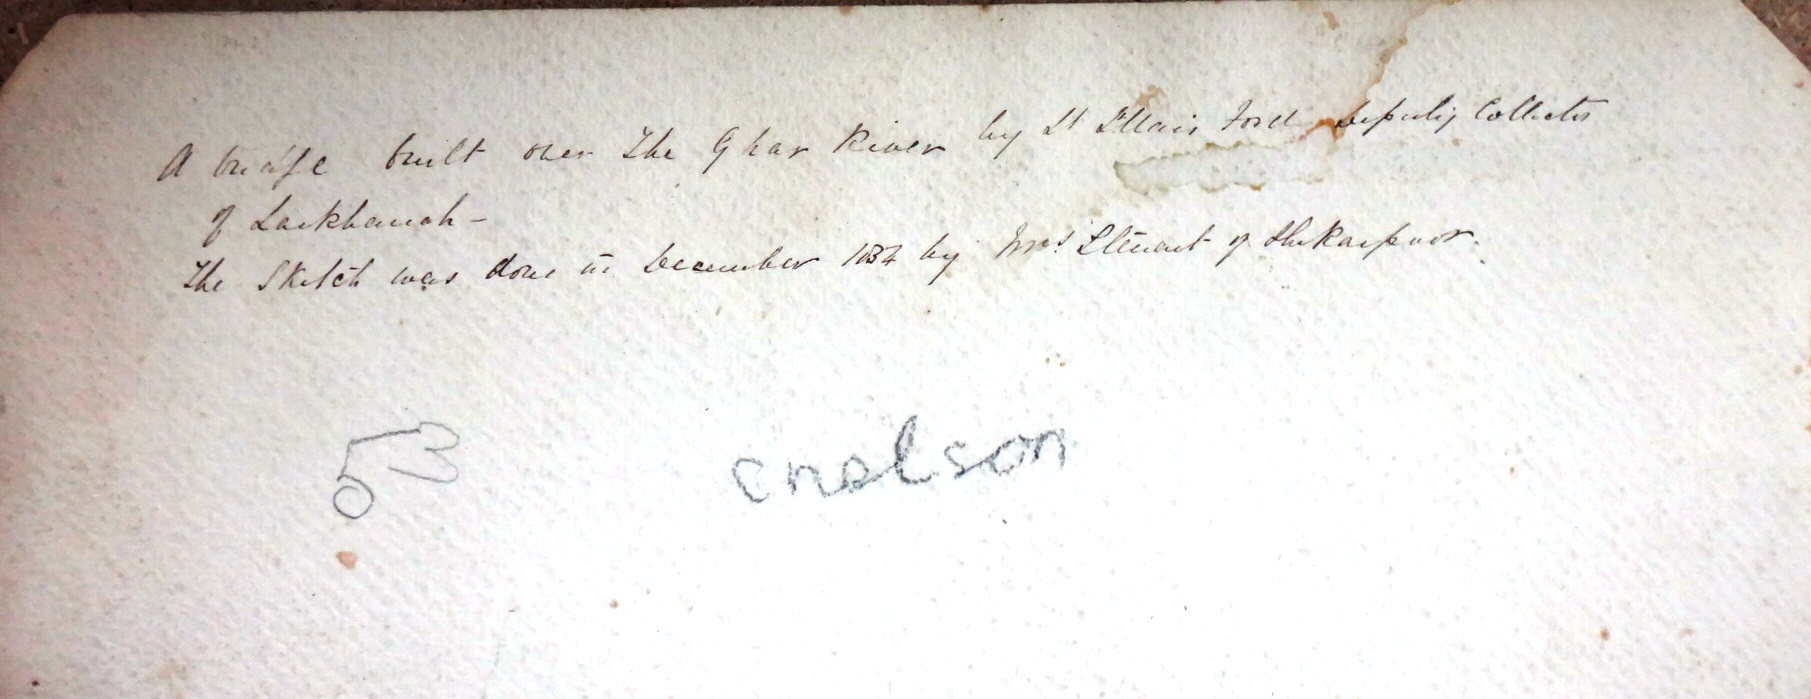 A bridge built over The Ghar River by Lt Ford Deputy Collector
of Larkhanah -
The Sketch was done in December by Mrs Steuart of Shikarpoor.
53
cnelson